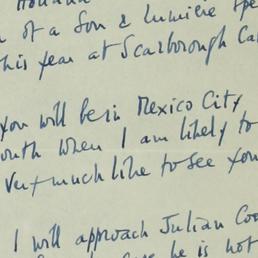 Holland
of a Son & Lumière spe
this year at Scarborough Ca
you will be in Mexico City
outh when I am likely to
very much like to see you
I will approach Julian Coo
he is not